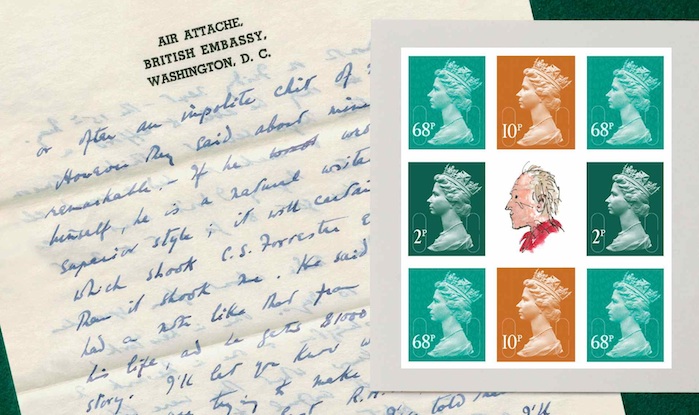 AIR ATTACHE,
BRITISH EMBASSY,
WASHINGTON, D. C.
or often an impolite chit of
However they said about mine
remarkable:- If he
himself, he is a natural
superior style; it will
which shook C.S. Forrester
than it shook me. He said
had a note like that from
his life, and he gets $1000
story. I'll let you know
trying to make
R.A. told
I'll
68P
10P
68P
2P
2P
68P
10P
68P